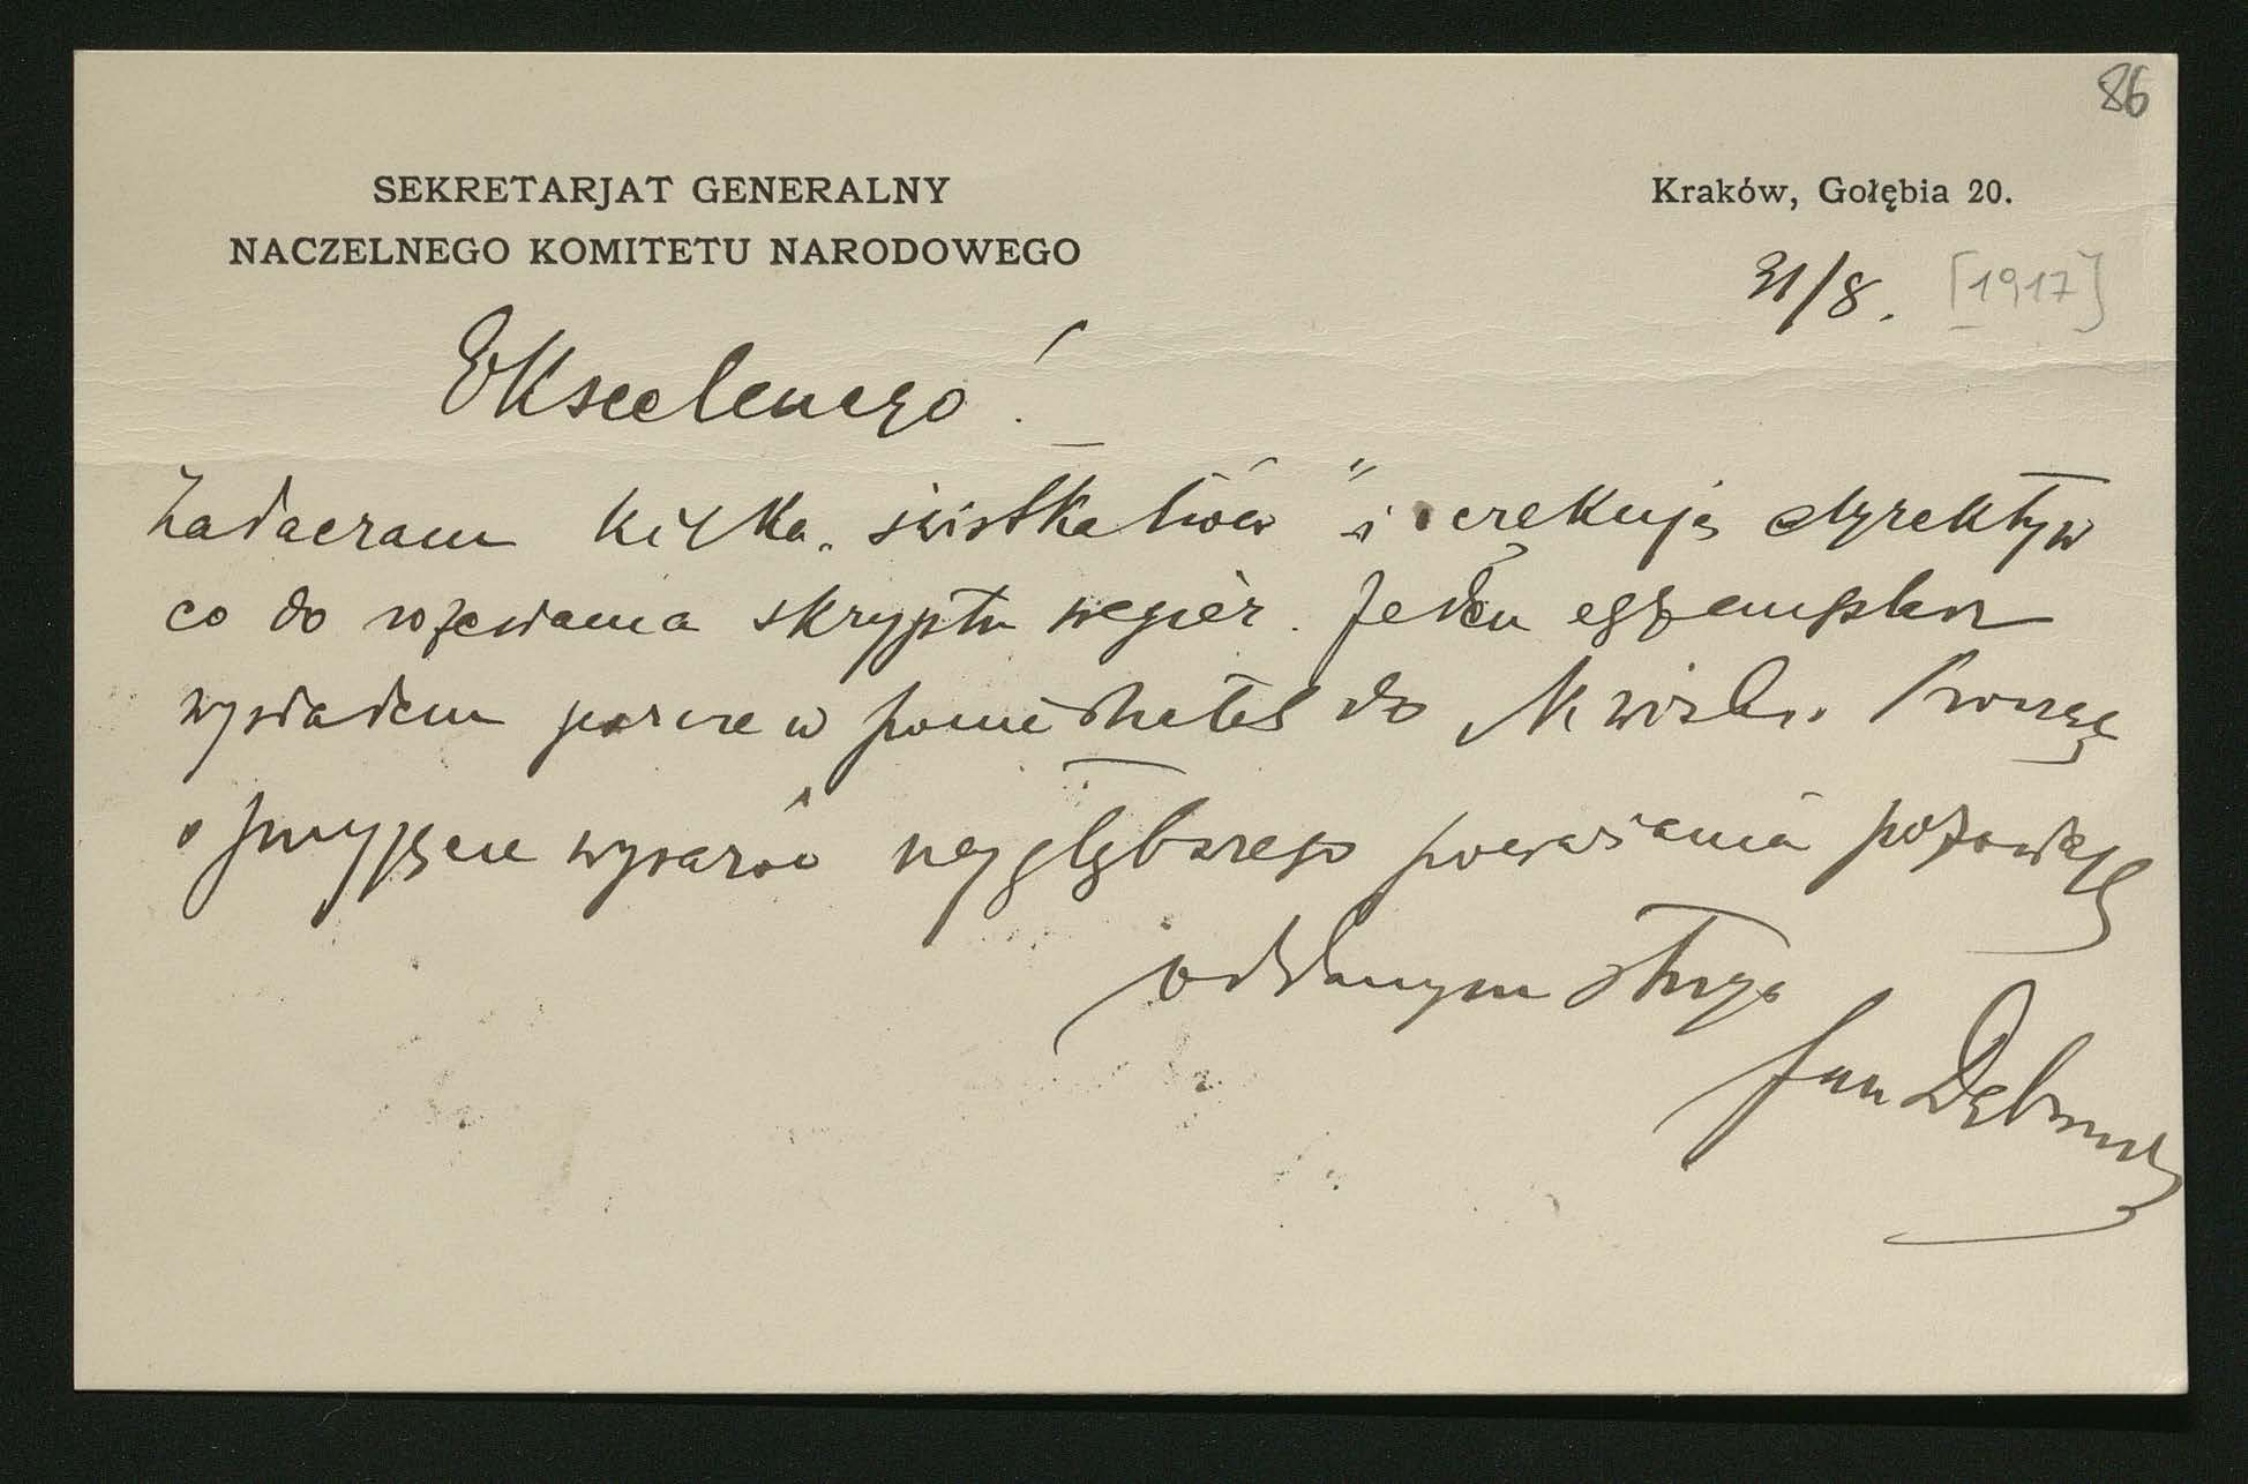 86
SEKRETARJAT GENERALNY
NACZELNEGO KOMITETU NARODOWEGO
Kraków, Gołębia 20.
31/8. [1917]
Ekscelencyo!
Załączam kilka „świstka
i czekuję dyrektyw
co do rozesłania skryptu węgier. Jeden egzemplarz
wysłałem do N. Proszę
o przyjęcie wyrazów najgłębszego poważania pozostaję
oddanym sługą
Jan Dąbrowski